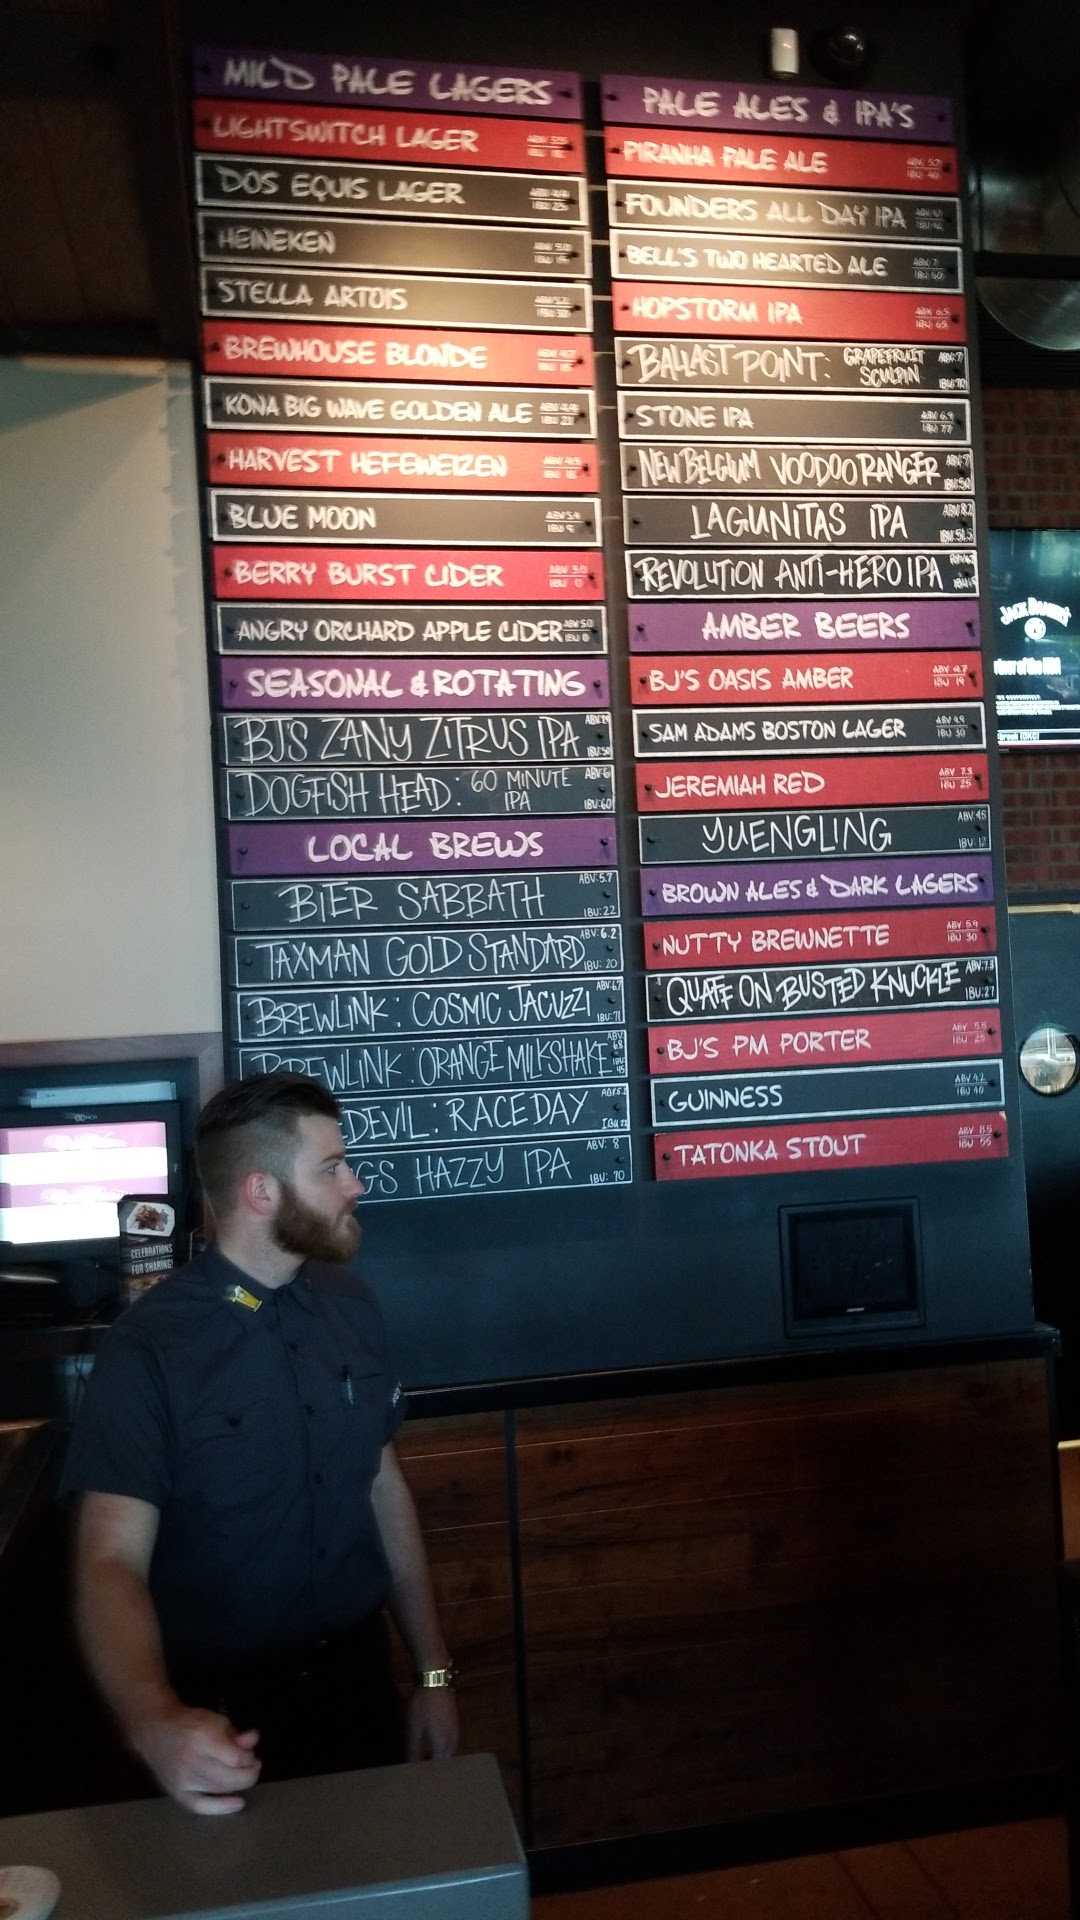 MILD PALE LAGERS
LIGHTSWITCH LAGER
DOS EQUIS LAGER
HEINEKEN
STELLA ARTOIS
BREWHOUSE BLONDE
KONA BIG WAVE GOLDEN ALE
HARVEST HEFEWEIZEN
BLUE MOON ABV 5.4
IBU 9
BERRY BURST CIDER
IBU 0
ANGRY ORCHARD APPLE CIDER ABV 5.0
SEASONAL & ROTATING
BJ'S ZANY ZITRUS IPA
DOGFISH HEAD: 60 MINUTE IPA ABV:6
IBU:60
LOCAL BREWS
BIER SABBATH ABV:5.7
IBU:22
TAXMAN GOLD STANDARD ABV:6.2
IBU: 20
BREWLINK: COSMIC JACUZZI ABV:6.7
IBU:71
BREWLINK: ORANGE MILKSHAKE ABV: 6.8
IBU: 45
EDEVIL: RACE DAY
GS HAZZY IPA ABV: 8
IBU: 70
PALE ALES & IPA'S
PIRANHA PALE ALE ABV 5.7
IBU 40
FOUNDERS ALL DAY IPA
BELL'S TWO HEARTED ALE ABV 7
IBU 60
HOPSTORM IPA ABV 6.5
IBU 65
BALLAST POINT: GRAPEFRUIT SCULPIN ABV:7
IBU:70
STONE IPA ABV 6.9
IBU 77
NEW BELGIUM VOODOO RANGER ABV:7
IBU:50
LAGUNITAS IPA ABV:8.2
IBU:51.5
REVOLUTION ANTI-HERO IPA
AMBER BEERS
BJ'S OASIS AMBER ABV 4.7
IBU 19
SAM ADAMS BOSTON LAGER ABV 4.9
IBU 30
JEREMIAH RED ABV 7.3
IBU 25
YUENGLING ABV:4.5
IBU:12
BROWN ALES & DARK LAGERS
NUTTY BREWNETTE ABV 5.9
IBU 30
QUAFF ON BUSTED KNUCKLE ABV:7.3
IBU:27
BJ'S PM PORTER ABV 5.5
IBU 25
GUINNESS ABV 4.2
IBU 40
TATONKA STOUT ABV 8.5
IBU 55
JACK DANIEL'S
of the NBA
brook (OKC)
CELEBRATIONS
FOR SHARING!